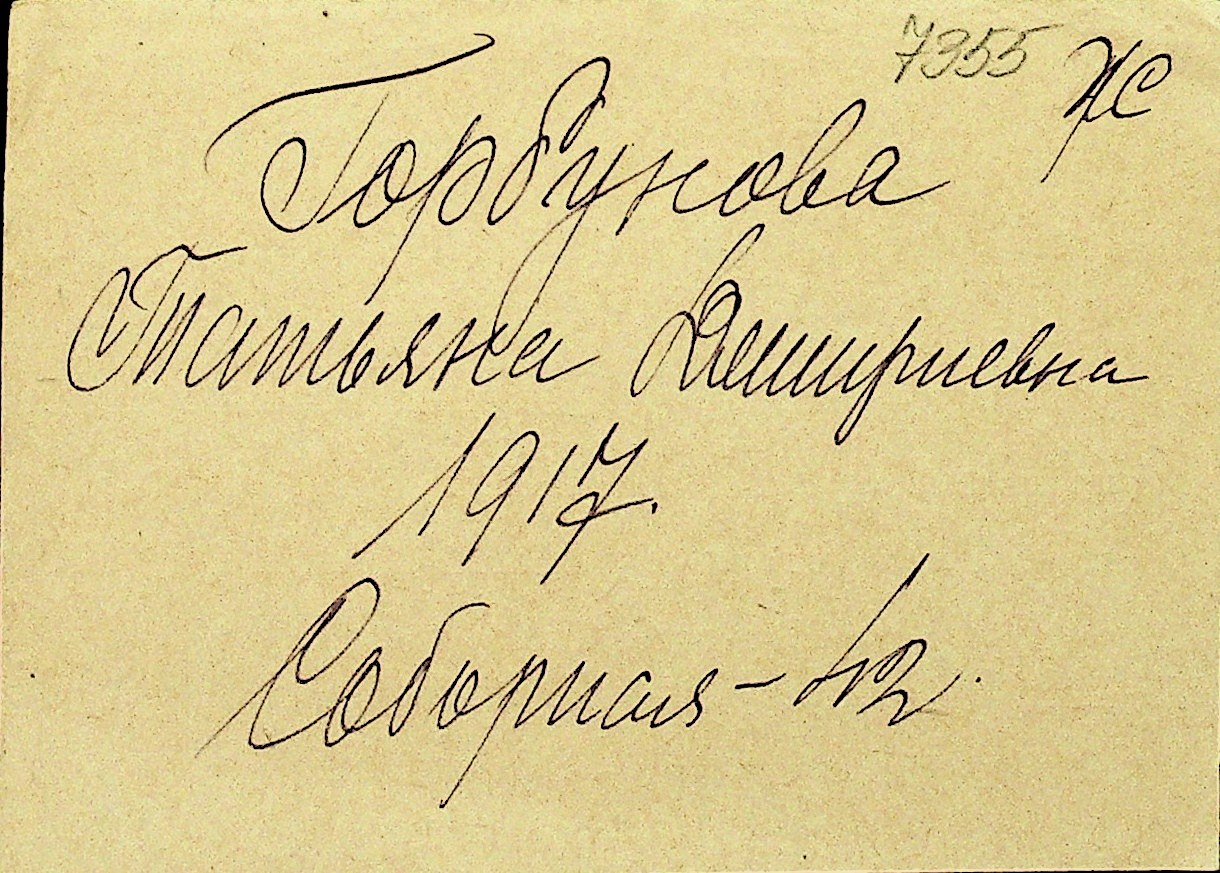 7355 ЖС
Горбунова
Татьяна Дмитриевна
1917.
Соборная - 42.